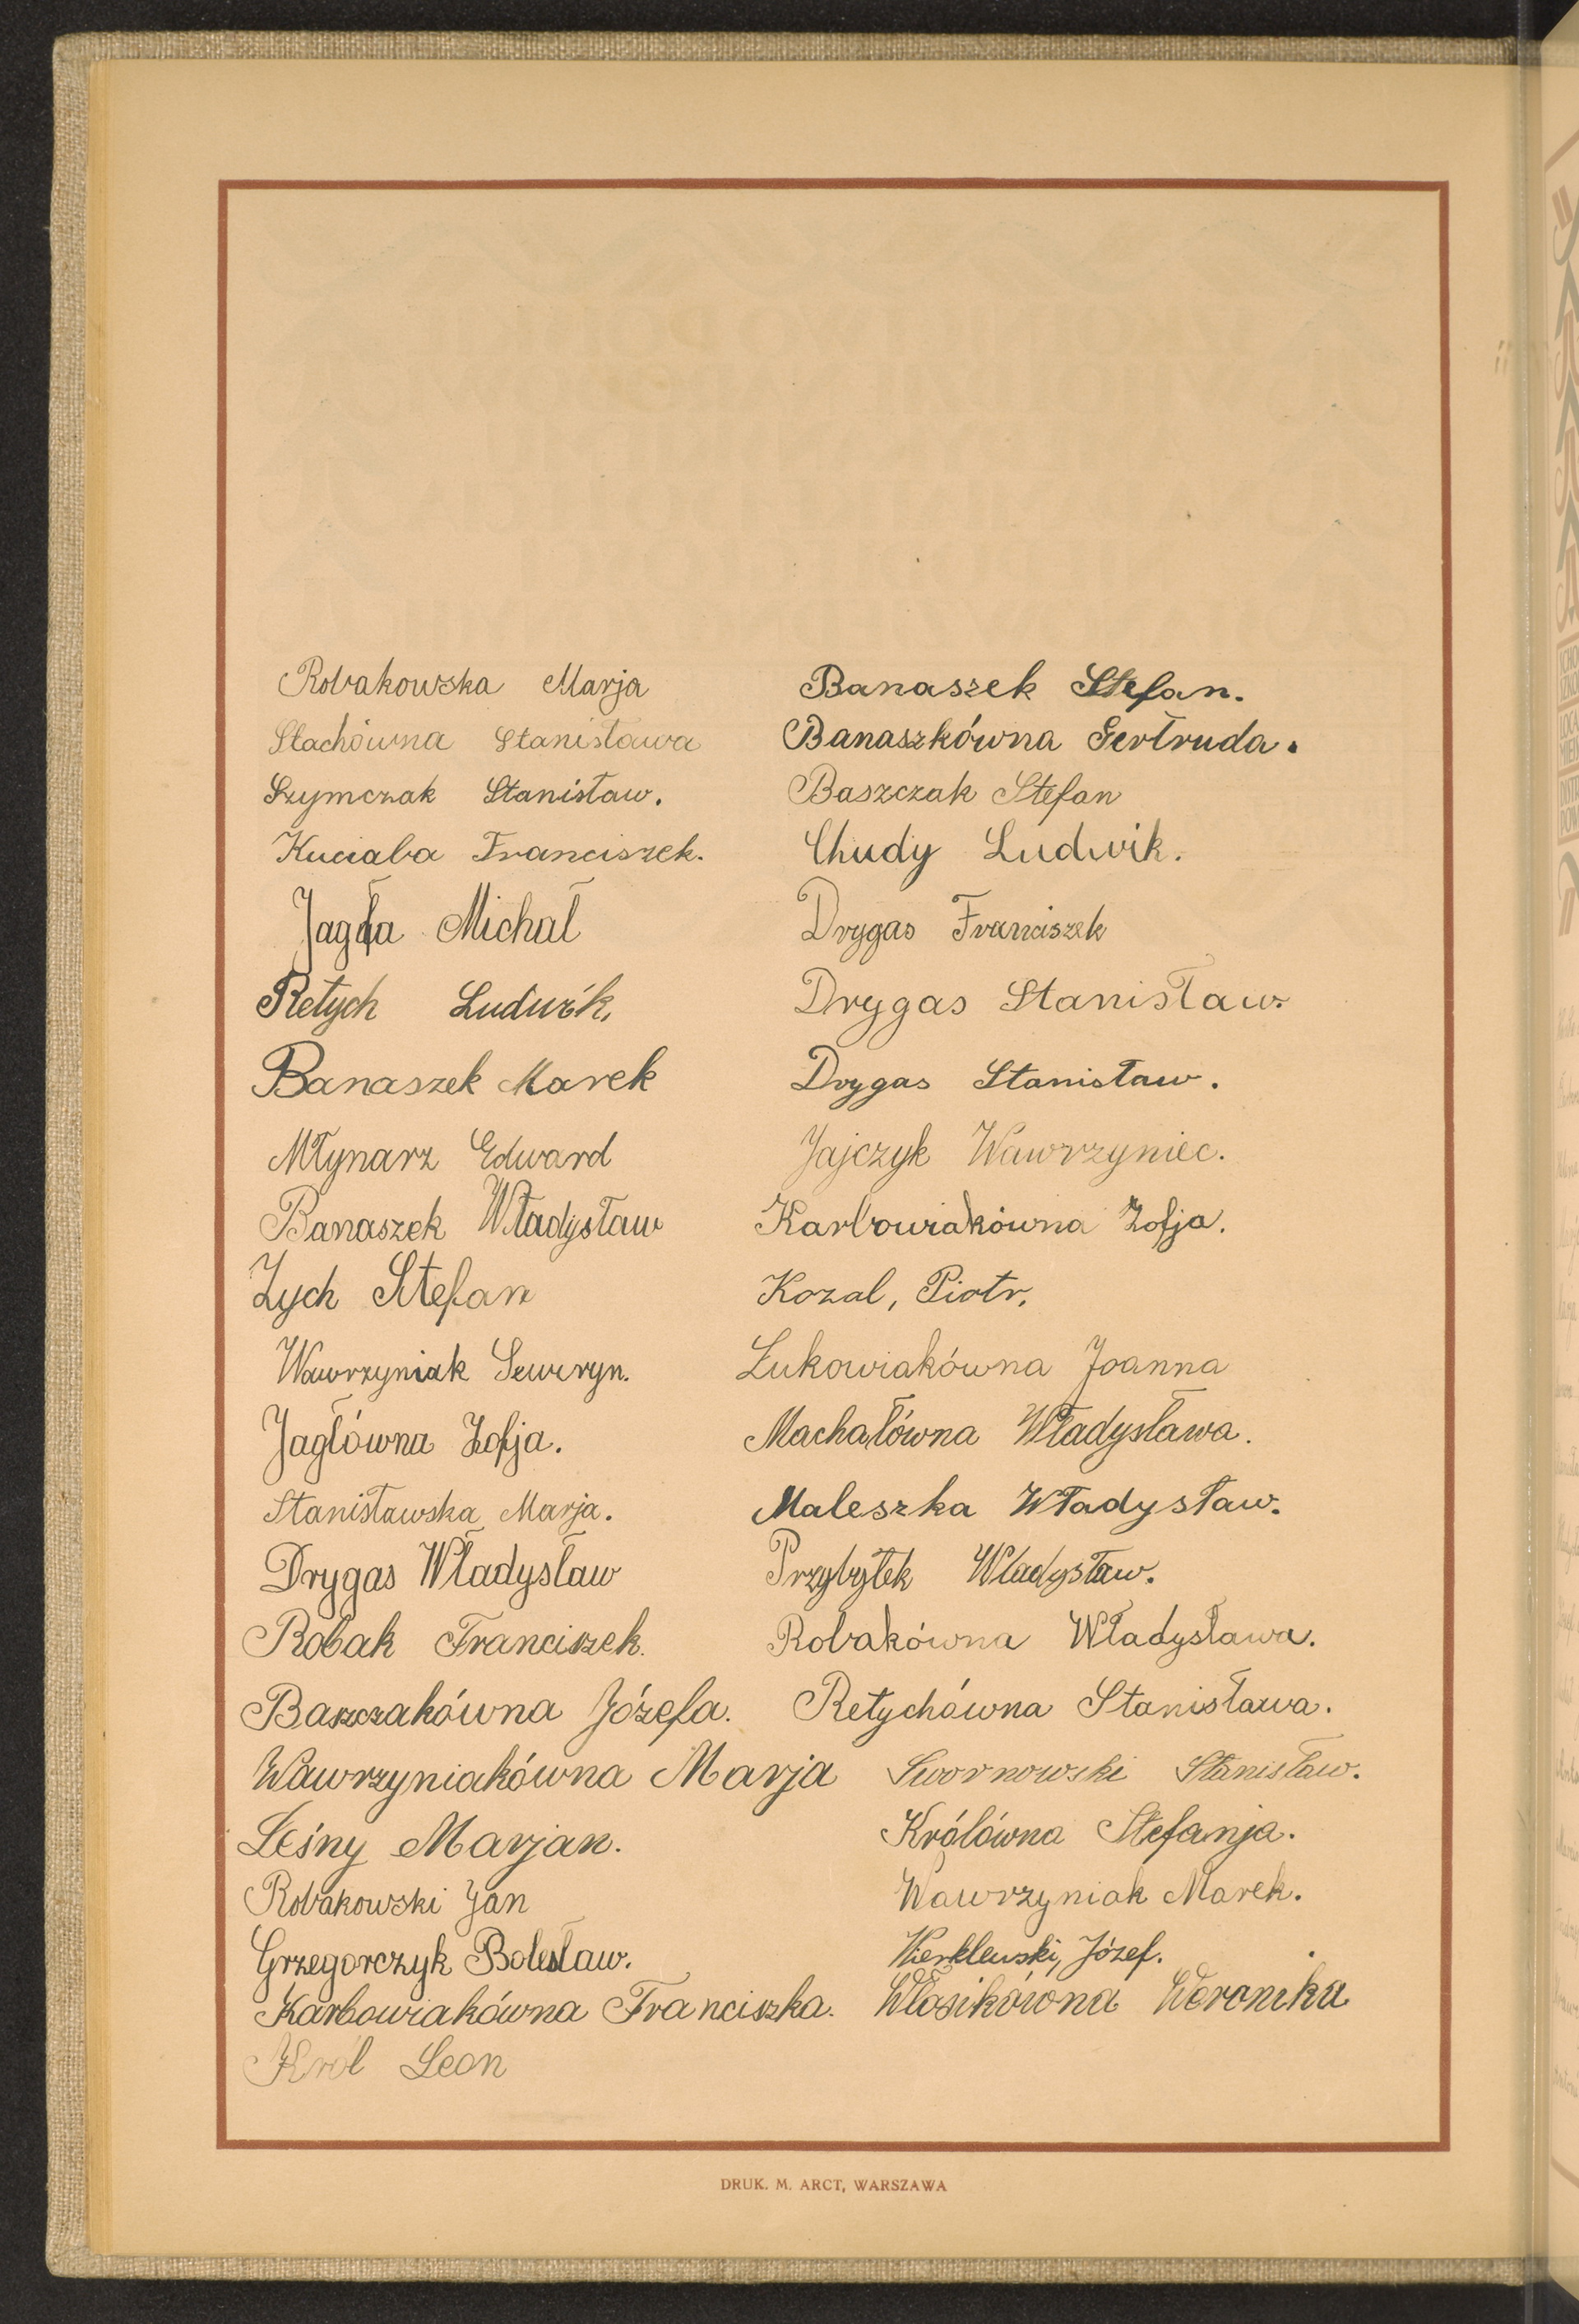 Robakowska Marja
Stachówna Stanisława
Szymczak Stanisław.
Kuciaba Franciszek.
Jagła Michał
Retych Ludwik,
Banaszek Marek
Młynarz Edward
Banaszek Władysław
Zych Stefan
Wawrzyniak Seweryn.
Jagłówna Zofja.
Stanisławska Marja.
Drygas Władysław
Robak Franciszek.
Baszczakówna Józefa.
Wawrzyniakówna Marja
Leśny Marjan.
Robakowski Jan
Grzegorczyk Bolesław.
Karbowiakówna Franciszka.
Król Leon
Banaszek Stefan.
Banaszkówna Gertruda.
Baszczak Stefan
Chudy Ludwik.
Drygas Franciszek
Drygas Stanisław.
Drygas Stanisław.
Jajczyk Wawrzyniec.
Karbowiakówna Zofja.
Kozal, Piotr,
Łukowiakówna Joanna
Machałówna Władysława.
Maleszka Władysław.
Przybyłek Władysław.
Robakówna Władysława.
Retychówna Stanisława.
Swornowski Stanisław.
Królówna Stefanja.
Wawrzyniak Marek.
Józef.
Włosikówna Weronika
DRUK. M. ARCT, WARSZAWA